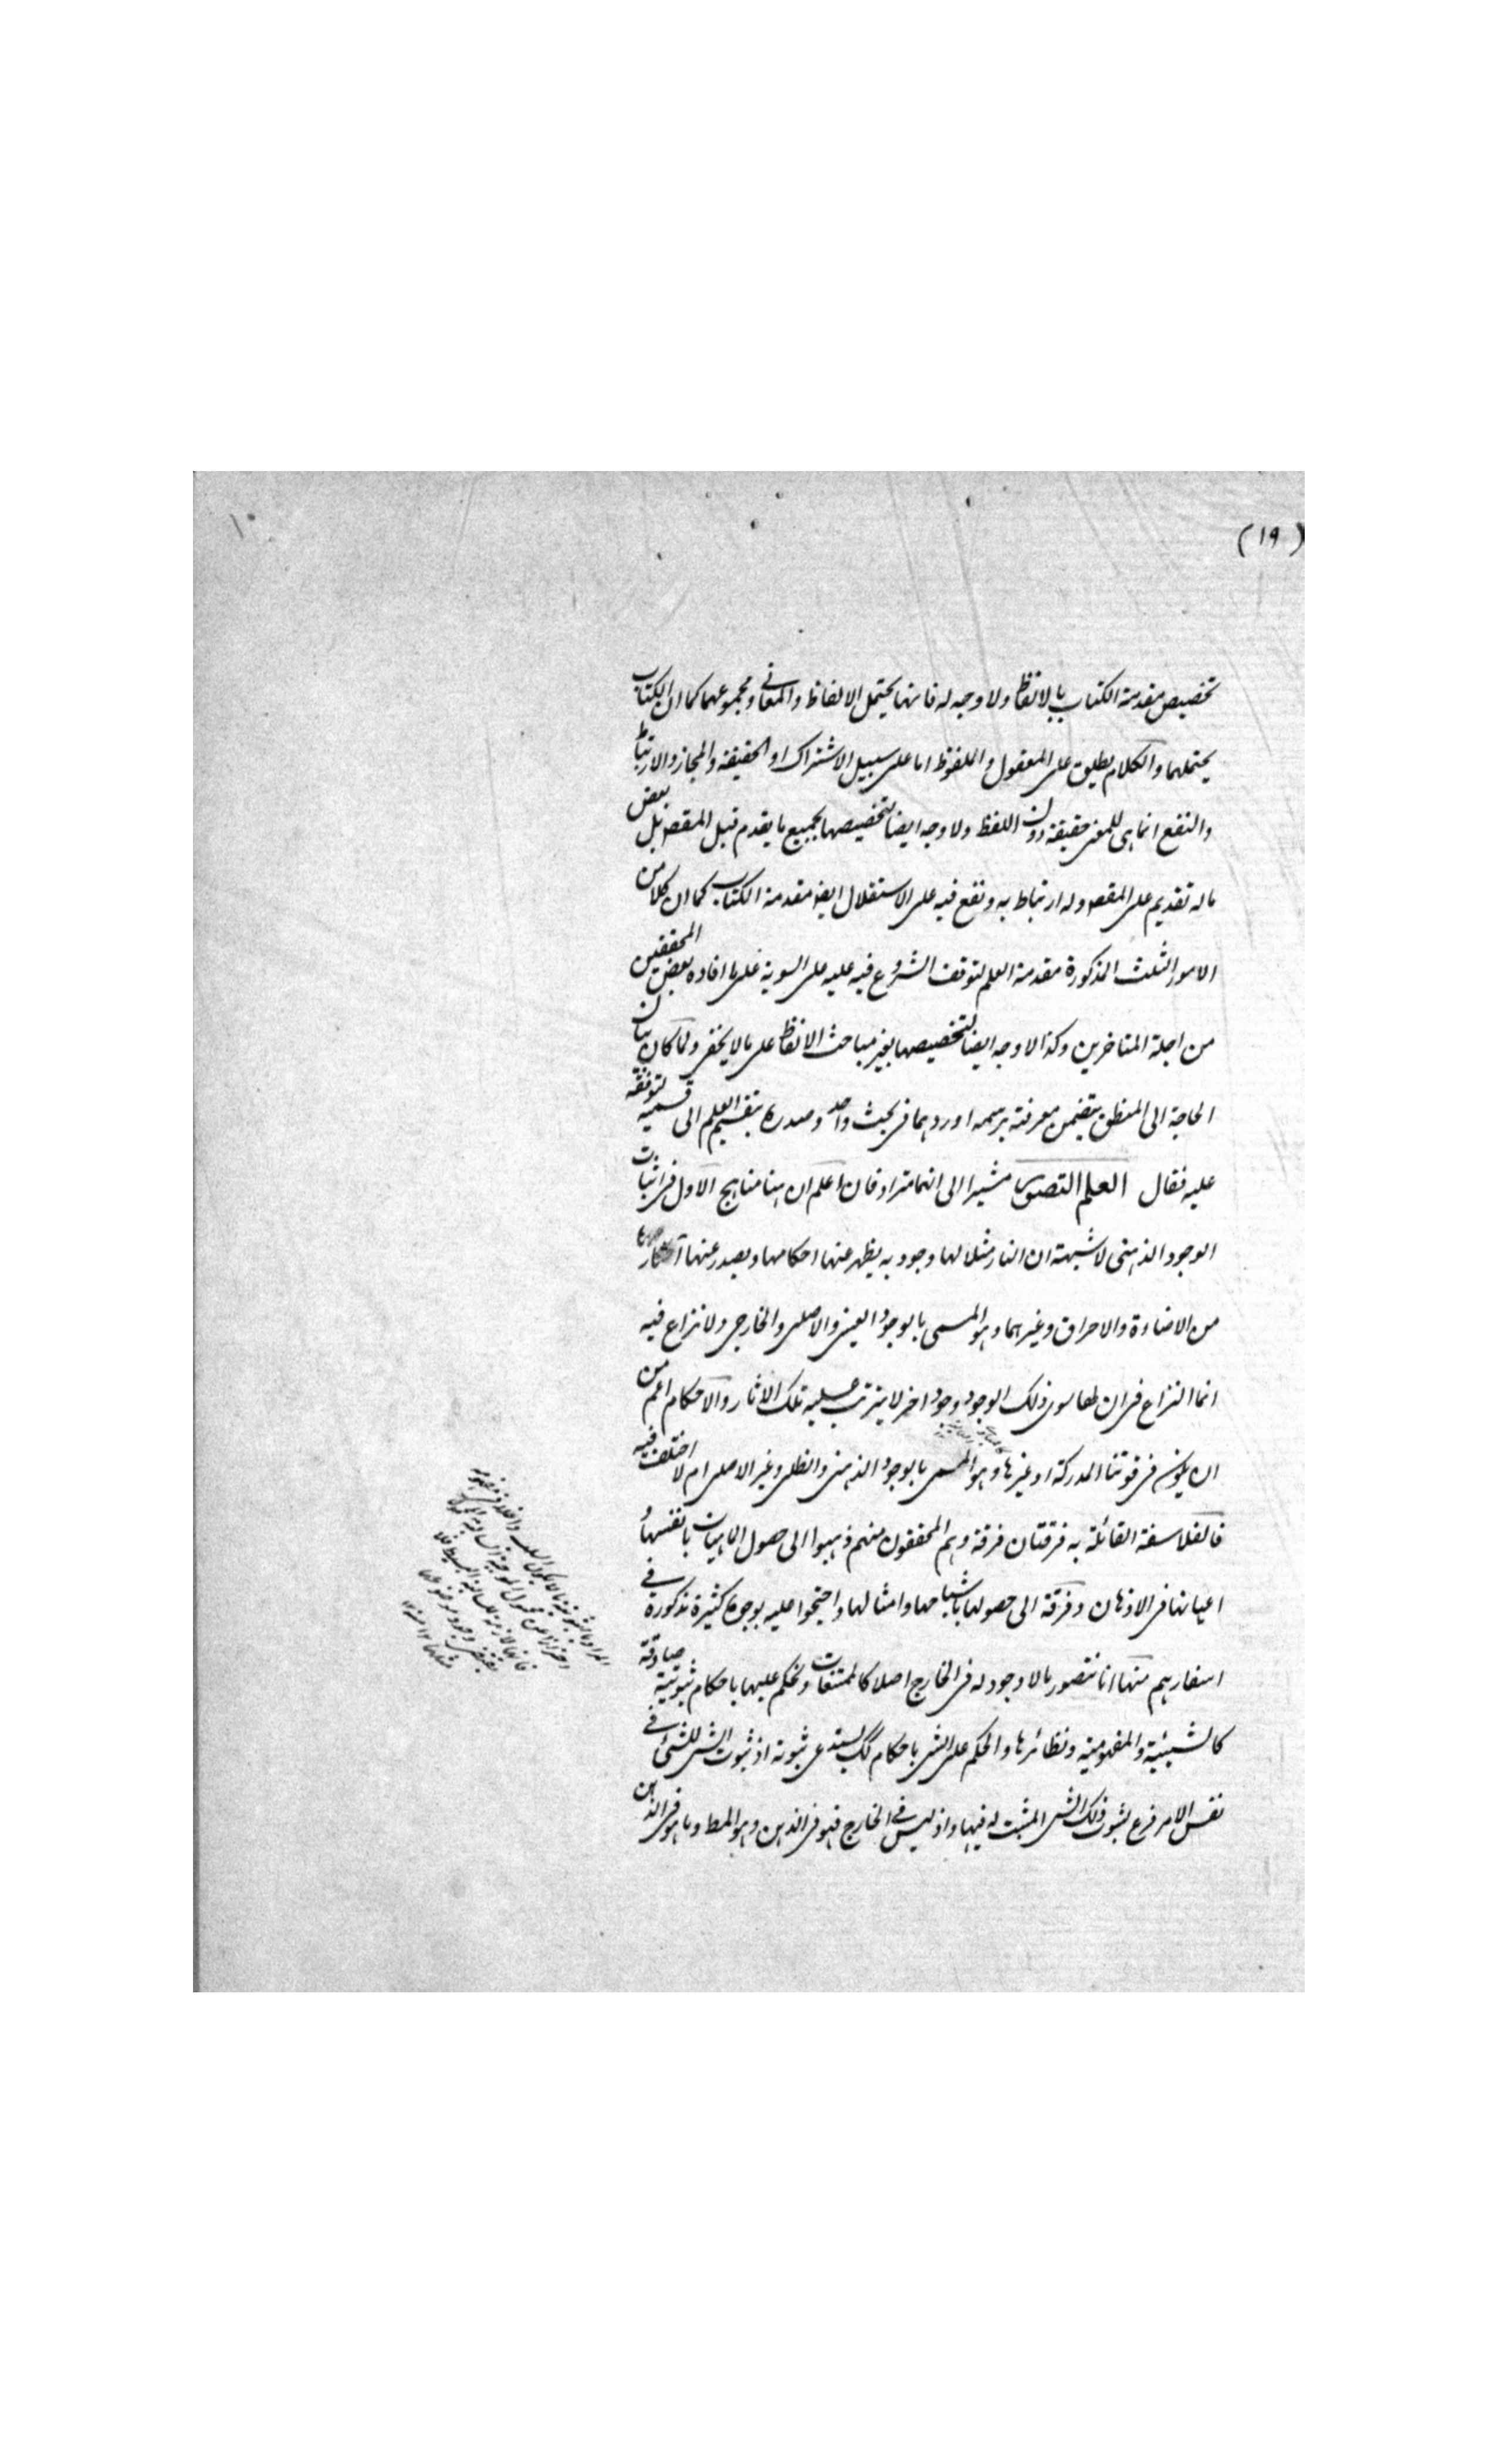 (١٩)
١٠
تخصيص مقدمة الكتاب بالالفاظ ولا وجه له فانها يحتمل الالفاظ والمعاني ومجموعهما كما ان الكتاب
يحتملهما والكلام يطلق على المعقول والملفوظ اما على سبيل الاشتراك او الحقيقة والمجاز والارتباط
والنفع انما هى للمعنى حقيقة دون اللفظ ولا وجه ايضا لتخصيصها بجميع ما يقدم قبل المقصد بل بعض
ما له تقديم على المقصد وله ارتباط به ونفع فيه على الاستقلال ايضا مقدمة الكتاب كما ان كلا من
الامور الثلث المذكورة مقدمة العلم لتوقف الشروع فيه عليه على السوية على ما افاده بعض المحققين
من اجلة المتاخرين وكذا لا وجه ايضا لتخصيصها بغير مباحث الالفاظ على ما لا يخفى ولما كان بيان
الحاجة الى المنطق يتضمن معرفته برسمه اوردهما فى بحث واحد وصدره بتقسيم العلم الى قسميه لتوقفه
عليه فقال العلم التصور مشيرا الى انهما مترادفان اعلم ان هنا مناهج الاول فى اثبات
الوجود الذهنى لا شبهة ان النار مثلا لها وجود به يظهر عنها احكامها ويصدر عنها آثارها
من الاضاءة والاحراق وغيرهما وهو المسمى بالوجود العينى والاصلى والخارجى ولا نزاع فيه
انما النزاع فى ان لها سوى ذلك الوجود وجود اخر لا يترتب عليه تلك الاثار والاحكام اعم من
ان يكون فى قوتنا المدركة او غيرها وهو المسمى بالوجود الذهنى والظلى وغير الاصلى ام لا اختلف فيه
فالفلاسفة القائلة به فرقتان فرقة وهم المحققون منهم ذهبوا الى حصول الماهيات بانفسها و
اعيانها فى الاذهان وفرقة الى حصولها باشباحها وامثالها واحتجوا عليه بوجوه كثيرة مذكورة فى
اسفارهم منها انا نتصور ما لا وجود له فى الخارج اصلا كالممتنعات ونحكم عليها باحكام ثبوتية صادقة
كالشيئية والمفهومية ونظائرها والحكم على الشى باحكام كك يستدعى ثبوته اذ ثبوت الشى للشئ فى
نفس الامر فرع لثبوت ذلك الشى المثبت له فيها واذ ليس فى الخارج فهو فى الذهن وهو المط وما هو فى الذهن